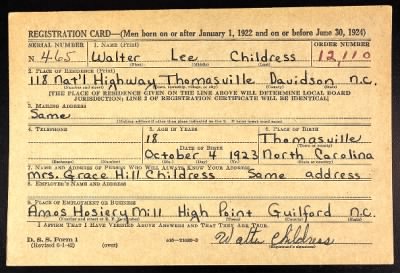 REGISTRATION CARD—(Men born on or after January 1, 1922 and on or before June 30, 1924)
SERIAL NUMBER 1. NAME (Print) ORDER NUMBER
N 465 Walter Lee Childress 12,110
2. PLACE OF RESIDENCE (Print)
118 Nat'l Highway Thomasville Davidson n.c.
(Number and street) (Town, township, village, or city) (County) (State)
[THE PLACE OF RESIDENCE GIVEN ON THE LINE ABOVE WILL DETERMINE LOCAL BOARD
JURISDICTION; LINE 2 OF REGISTRATION CERTIFICATE WILL BE IDENTICAL]
3. MAILING ADDRESS
Same
4. TELEPHONE 5. AGE IN YEARS 6. PLACE OF BIRTH
18 Thomasville
DATE OF BIRTH (Town or county)
October 4 1923 North Carolina
(Exchange) (Number) (Mo.) (Day) (Yr.) (State or country)
7. NAME AND ADDRESS OF PERSON WHO WILL ALWAYS KNOW YOUR ADDRESS
mrs. Grace Hill Childress Same address
8. EMPLOYER'S NAME AND ADDRESS
9. PLACE OF EMPLOYMENT OR BUSINESS
Amos Hosiery Mill High Point Guilford n.c.
(Number and street or R. F. D. number) (Town) (County) (State)
I AFFIRM THAT I HAVE VERIFIED ABOVE ANSWERS AND THAT THEY ARE TRUE.
D. S. S. Form 1
(Revised 6-1-42) (over) Walter Childress